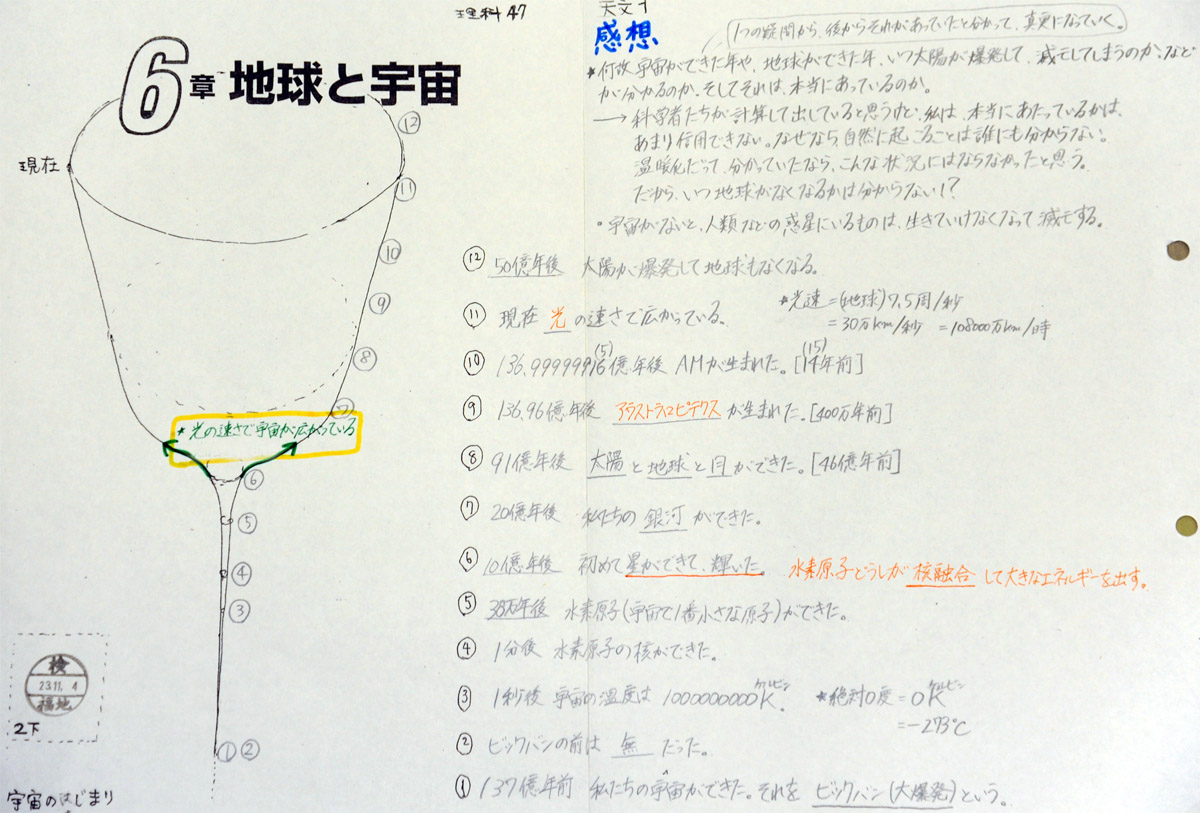 理科47
天文1
6章 地球と宇宙
現在
⑫
⑪
⑩
⑨
⑧
⑦
*光の速さで宇宙が広がっている
⑥
⑤
④
③
① ②
検
23.11. 4
福地
2下
宇宙のはじまり
感想
1つの疑問から、後からそれがあっていたと分かって、真実になっていく。
*何故宇宙ができた年や、地球ができた年、いつ太陽が爆発して、滅亡してしまうのか、など
が分かるのか。そしてそれは、本当にあっているのか。
→科学者たちが計算して出していると思うけど、私は、本当にあたっているかは、
あまり信用できない。なぜなら、自然に起こることは誰にも分からない。
温暖化だって、分かっていたなら、こんな状況にはならなかったと思う。
だから、いつ地球がなくなるかは分からない!?
・宇宙がないと、人類などの惑星にいるものは、生きていけなくなって滅亡する。
⑫ 50億年後 太陽が爆発して地球もなくなる。
⑪ 現在 光の速さで広がっている。
*光速=(地球)7.5周/秒
=30万km/秒 =108000万km/時
(5) (15)
⑩ 136.99999916億年後 AMが生まれた。[14年前]
⑨ 136.96億年後 アウストラロピテクスが生まれた。[400万年前]
⑧ 91億年後 太陽と地球と月ができた。[46億年前]
⑦ 20億年後 私たちの銀河ができた。
⑥ 10億年後 初めて星ができて、輝いた。 水素原子どうしが核融合して大きなエネルギーを出す。
⑤ 38万年後 水素原子(宇宙で1番小さな原子)ができた。
④ 1分後 水素原子の核ができた。
③ 1秒後 宇宙の温度は1000000000Kケルビン。 *絶対0度=0Kケルビン
=-273℃
② ビックバンの前は 無 だった。
① 137億年前 私たちの宇宙ができた。それを ビックバン(大爆発)という。